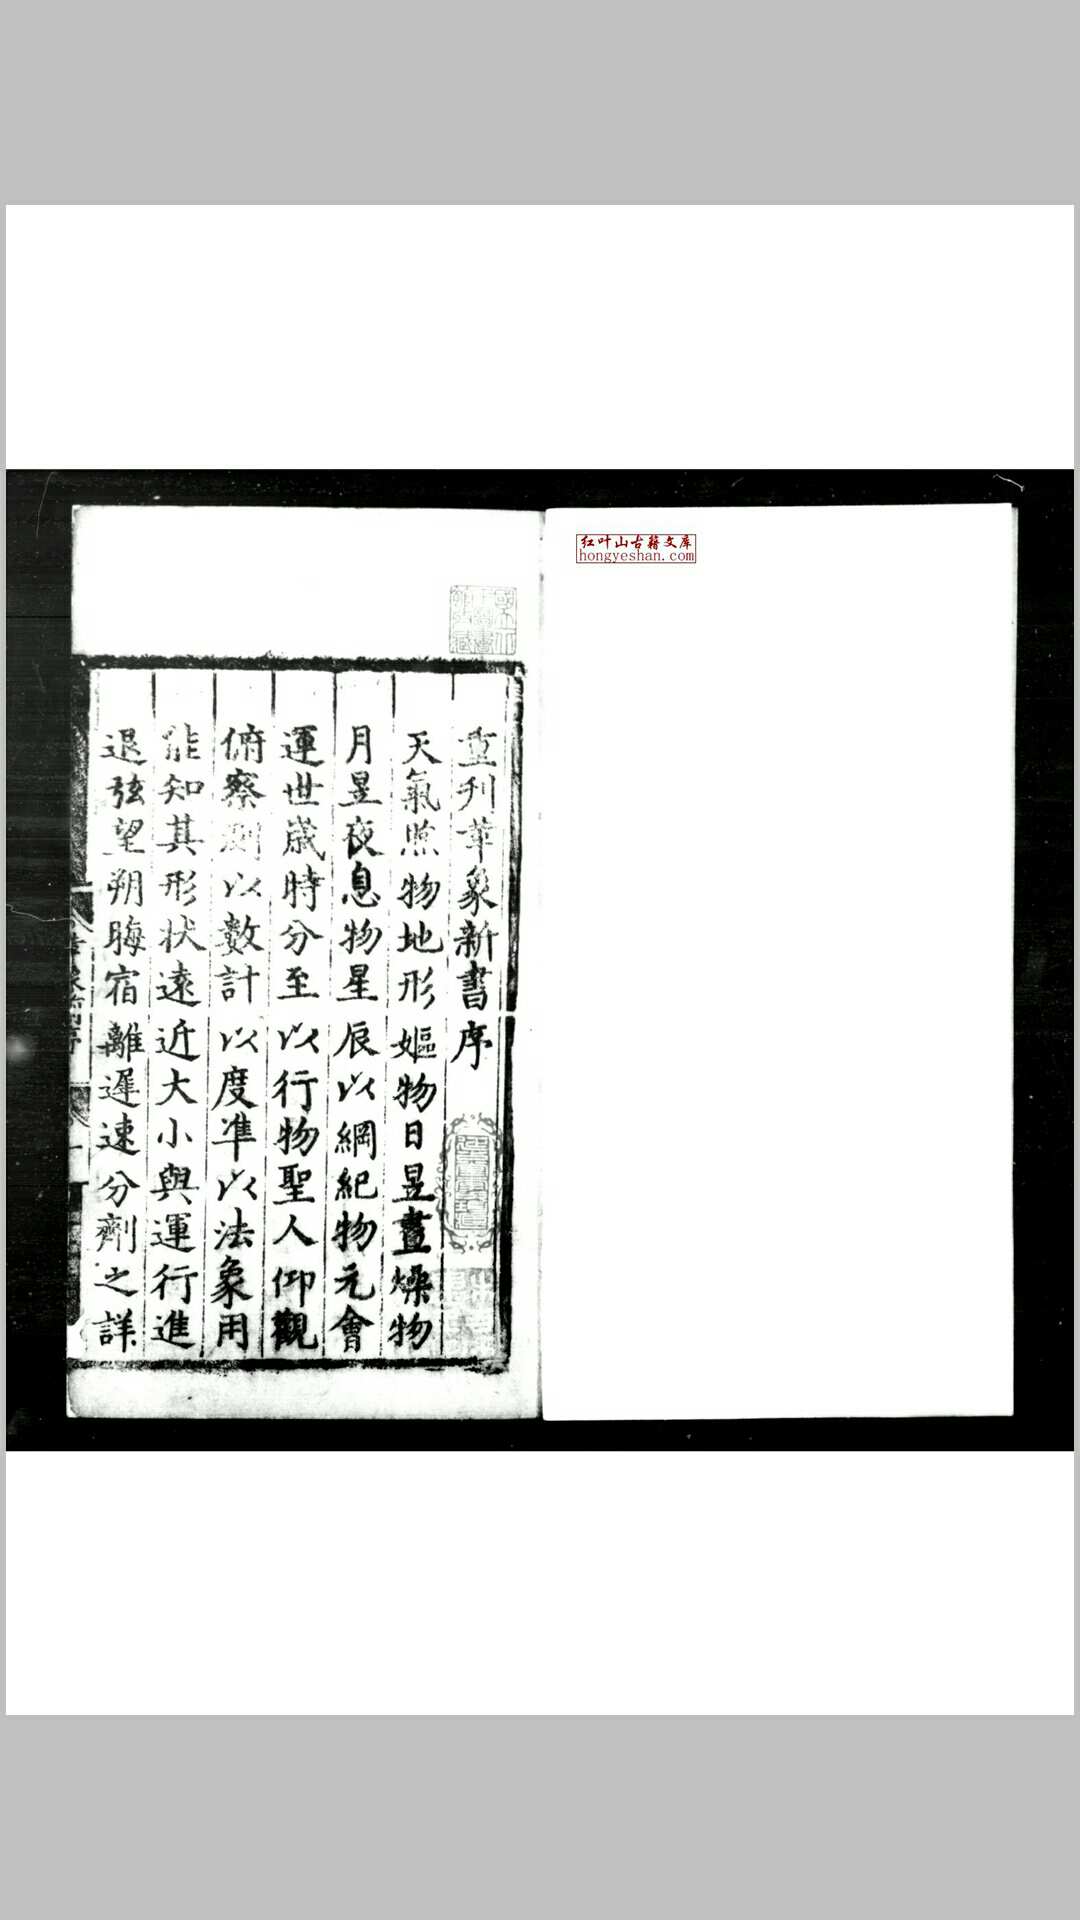 红叶山古籍文库
hongyeshan.com
重刋革象新書序
天氣煦物地形嫗物日昱晝燥物
月昱夜息物星辰以綱紀物元會
運世歲時分至以行物聖人仰觀
俯察測以數計以度準以法象用
能知其形狀遠近大小與運行進
退弦望朔晦宿離遲速分劑之詳